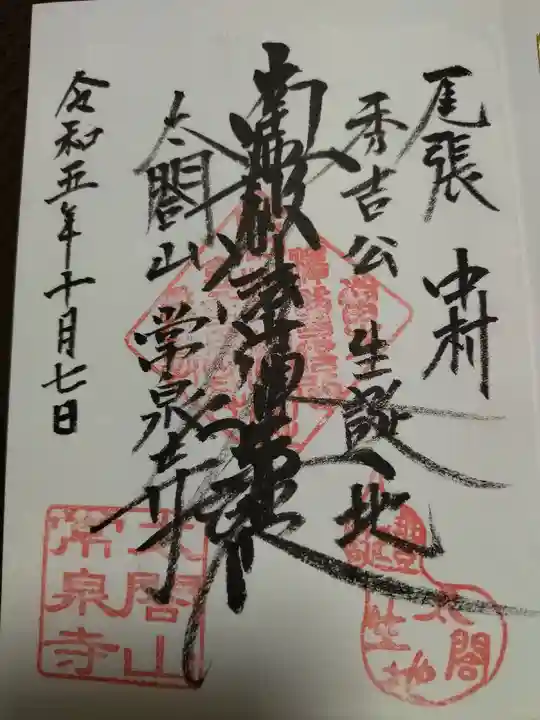 尾張 中村
秀吉公 生誕之地
南無妙法蓮華経
太閤山 常泉寺
令和五年十月七日
太閤山
常泉寺
豊
太閤
生地